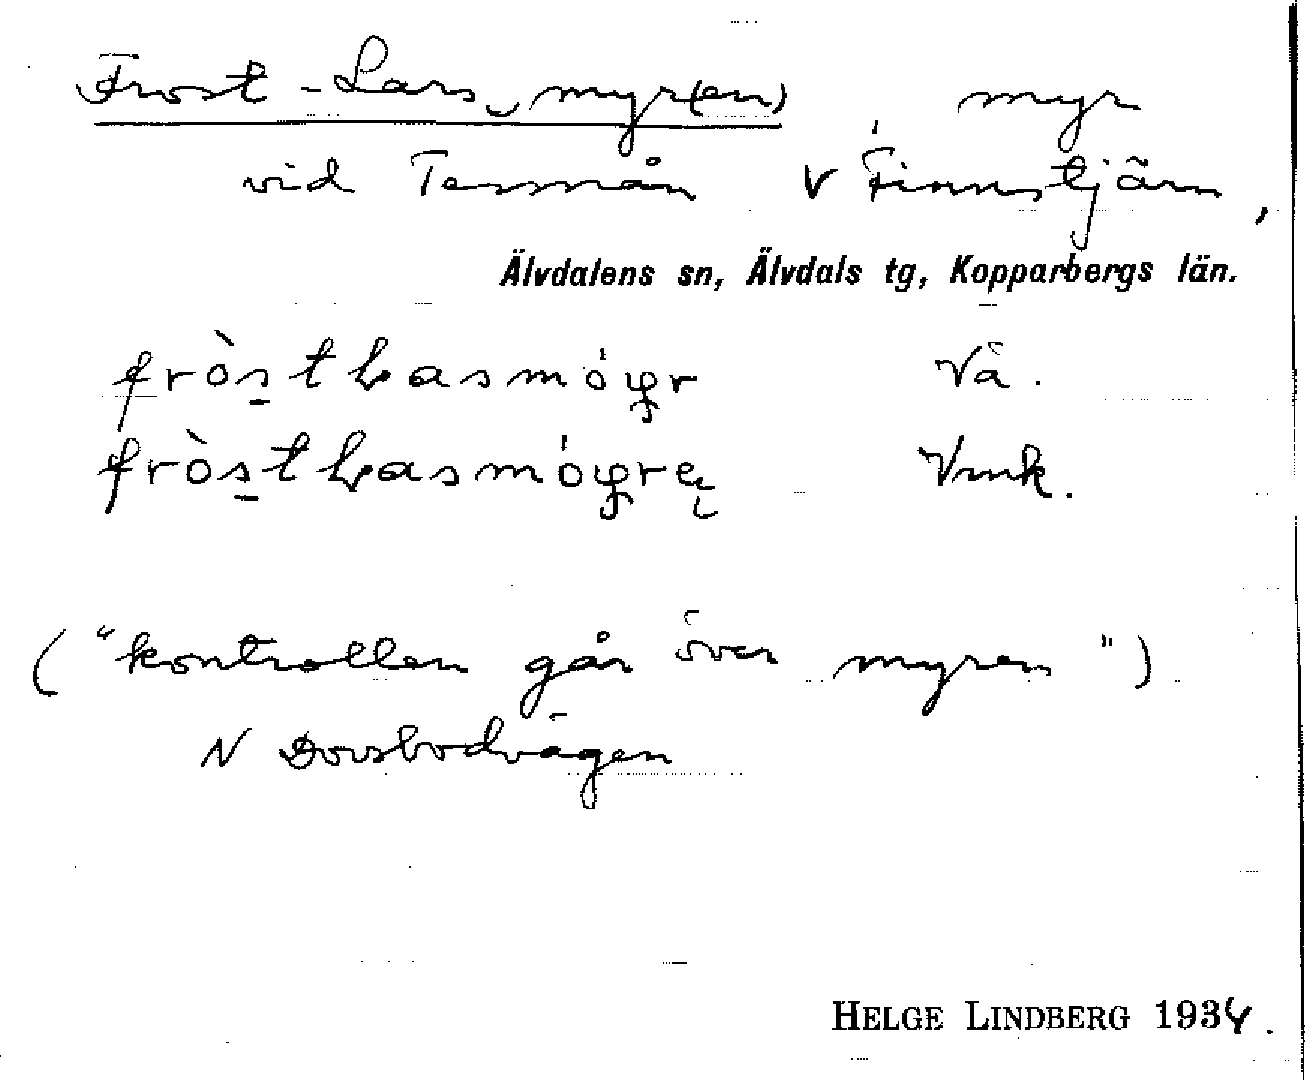 Frost-Lars myr(en) myr
vid Tennån V Finnstjärn,
Älvdalens sn, Älvdals tg, Kopparbergs län.
Vå.
Vmk.
("kontrollen går över myren")
N Dovsbodvägen
HELGE LINDBERG 1934.